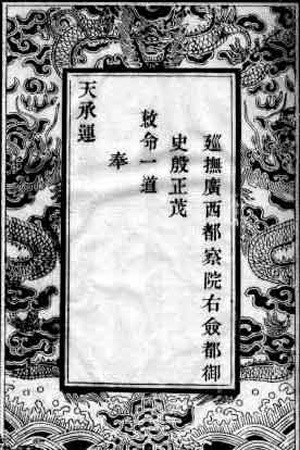 廵撫廣西都察院右僉都御
史殷正茂
敕命一道
奉
天承運